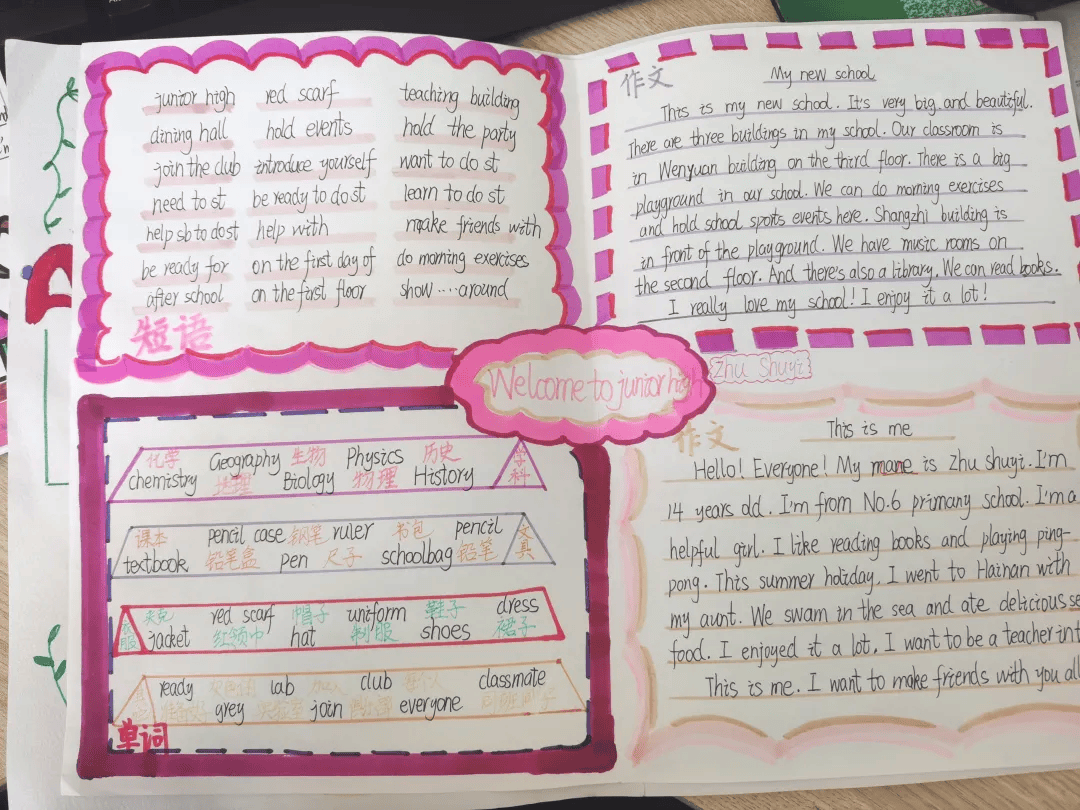 junior high red scarf teaching building
dining hall hold events hold the party
join the club introduce yourself want to do st
need to st be ready to do st learn to do st
help sb to do st help with make friends with
be ready for on the first day of do morning exercises
after school on the first floor show ....around
短语
作文 My new school
This is my new school. It's very big and beautiful.
There are three buildings in my school. Our classroom is
in Wenyuan building on the third floor. There is a big
playground in our school. We can do morning exercises
and hold school sports events here. Shangzhi building is
in front of the playground. We have music rooms on
the second floor. And there's also a library. We can read books.
I really love my school! I enjoy it a lot!
Welcome to junior high
Zhu Shuyi
化学 Geography 生物 Physics 历史
chemistry 地理 Biology 物理 History
学科
课本 pencil case 钢笔 ruler 书包 pencil
textbook 铅笔盒 pen 尺子 schoolbag 铅笔
文具
夹克 red scarf 帽子 uniform 鞋子 dress
jacket 红领巾 hat 制服 shoes 裙子
服
ready lab 加入 club 每个人 classmate
grey 实验室 join everyone
单词
作文 This is me
Hello! Everyone! My mane is Zhu Shuyi. I'm
14 years old. I'm from No.6 primany school. I'm a
helpful girl. I like reading books and playing ping-
pong. This summer holiday, I went to Hainan with
my aunt. We swam in the sea and ate delicious se
food. I enjoyed it a lot. I want to be a teacher in t
This is me. I want to make friends with you all